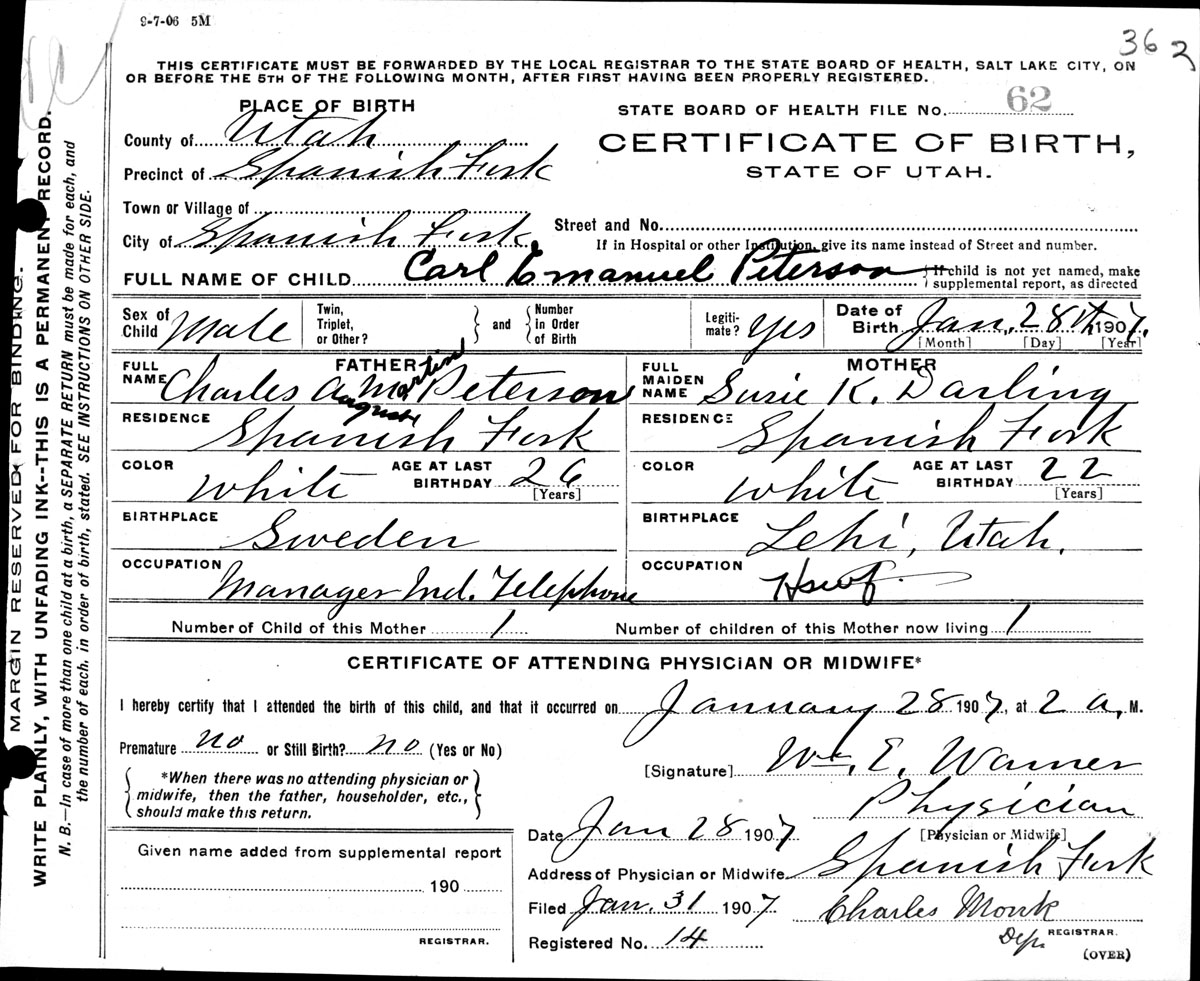 9-7-06 5M
36 2
THIS CERTIFICATE MUST BE FORWARDED BY THE LOCAL REGISTRAR TO THE STATE BOARD OF HEALTH, SALT LAKE CITY, ON
OR BEFORE THE 5TH OF THE FOLLOWING MONTH, AFTER FIRST HAVING BEEN PROPERLY REGISTERED.
PLACE OF BIRTH
STATE BOARD OF HEALTH FILE No. 62
County of Utah
CERTIFICATE OF BIRTH,
Precinct of Spanish Fork
STATE OF UTAH.
Town or Village of
Street and No.
City of Spanish Fork
If in Hospital or other Institution, give its name instead of Street and number.
FULL NAME OF CHILD Carl Emanuel Peterson
If child is not yet named, make
supplemental report, as directed
Sex of Child Male
Twin, Triplet, or Other? and Number in Order of Birth
Legitimate? Yes
Date of Birth Jan, 28th 1907,
[Month] [Day] [Year]
FATHER
FULL NAME Charles A M Peterson
August Martin
MOTHER
FULL MAIDEN NAME Susie K. Darling
RESIDENCE Spanish Fork
RESIDENCE Spanish Fork
COLOR White AGE AT LAST BIRTHDAY 26 [Years]
COLOR White AGE AT LAST BIRTHDAY 22 [Years]
BIRTHPLACE Sweden
BIRTHPLACE Lehi, Utah.
OCCUPATION Manager Ind. Telephone
OCCUPATION Hswf
Number of Child of this Mother 1 Number of children of this Mother now living 1
CERTIFICATE OF ATTENDING PHYSICIAN OR MIDWIFE*
I hereby certify that I attended the birth of this child, and that it occurred on January 28 1907, at 2 a, M.
Premature no or Still Birth? no (Yes or No)
[Signature] Wm. E. Warner
*When there was no attending physician or
midwife, then the father, householder, etc.,
should make this return.
Physician
[Physician or Midwife]
Date Jan 28 1907
Given name added from supplemental report
Address of Physician or Midwife Spanish Fork
190
Filed Jan. 31 1907 Charles Monk
REGISTRAR.
Dep. REGISTRAR.
Registered No. 14
(OVER)
MARGIN RESERVED FOR BINDING.
WRITE PLAINLY, WITH UNFADING INK--THIS IS A PERMANENT RECORD.
N. B.—In case of more than one child at a birth, a SEPARATE RETURN must be made for each, and
the number of each, in order of birth, stated. SEE INSTRUCTIONS ON OTHER SIDE.